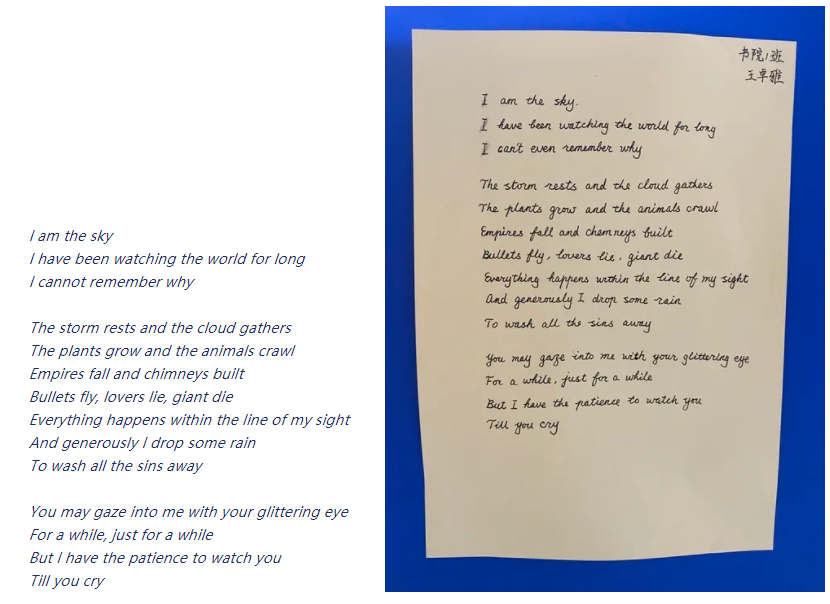 I am the sky
I have been watching the world for long
I cannot remember why
The storm rests and the cloud gathers
The plants grow and the animals crawl
Empires fall and chimneys built
Bullets fly, lovers lie, giant die
Everything happens within the line of my sight
And generously I drop some rain
To wash all the sins away
You may gaze into me with your glittering eye
For a while, just for a while
But I have the patience to watch you
Till you cry
书院1班
王卓雅
I am the sky.
I have been watching the world for long
I can't even remember why
The storm rests and the cloud gathers
The plants grow and the animals crawl
Empires fall and chemneys built
Bullets fly, lovers lie, giant die
Everything happens within the line of my sight
And generously I drop some rain
To wash all the sins away
You may gaze into me with your glittering eye
For a while, just for a while
But I have the patience to watch you
Till you cry